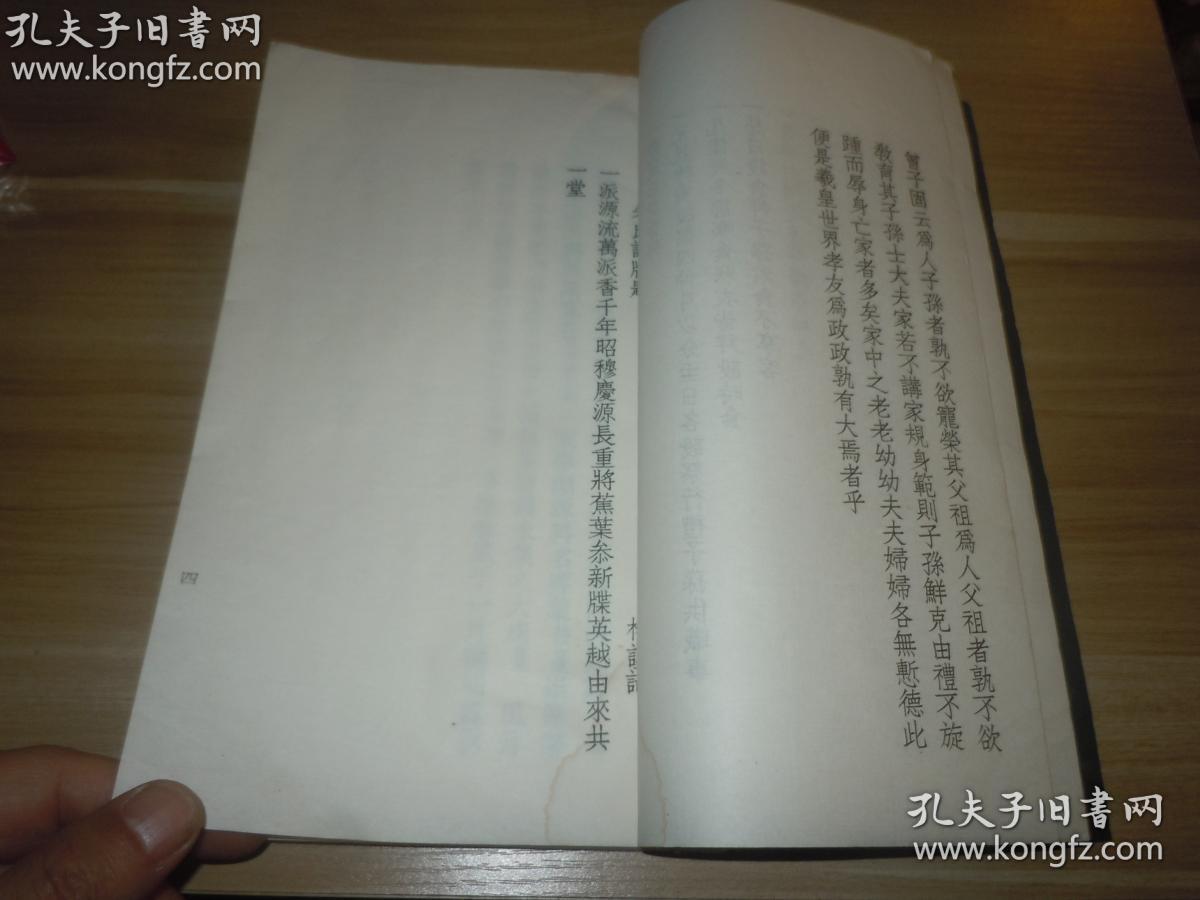 孔夫子旧书网
www.kongfz.com
曾子固云爲人子孫者孰不欲寵榮其父祖爲人父祖者孰不欲
教育其子孫士大夫家若不講家規身範則子孫鮮克由禮不旋
踵而辱身亡家者多矣家中之老老幼幼夫夫婦婦各無慙德此
便是羲皇世界孝友爲政政孰有大焉者乎
一派源流萬派香千年昭穆慶源長重將蕉葉叅新牒英越由來共
一堂
四
孔夫子旧书网
www.kongfz.com